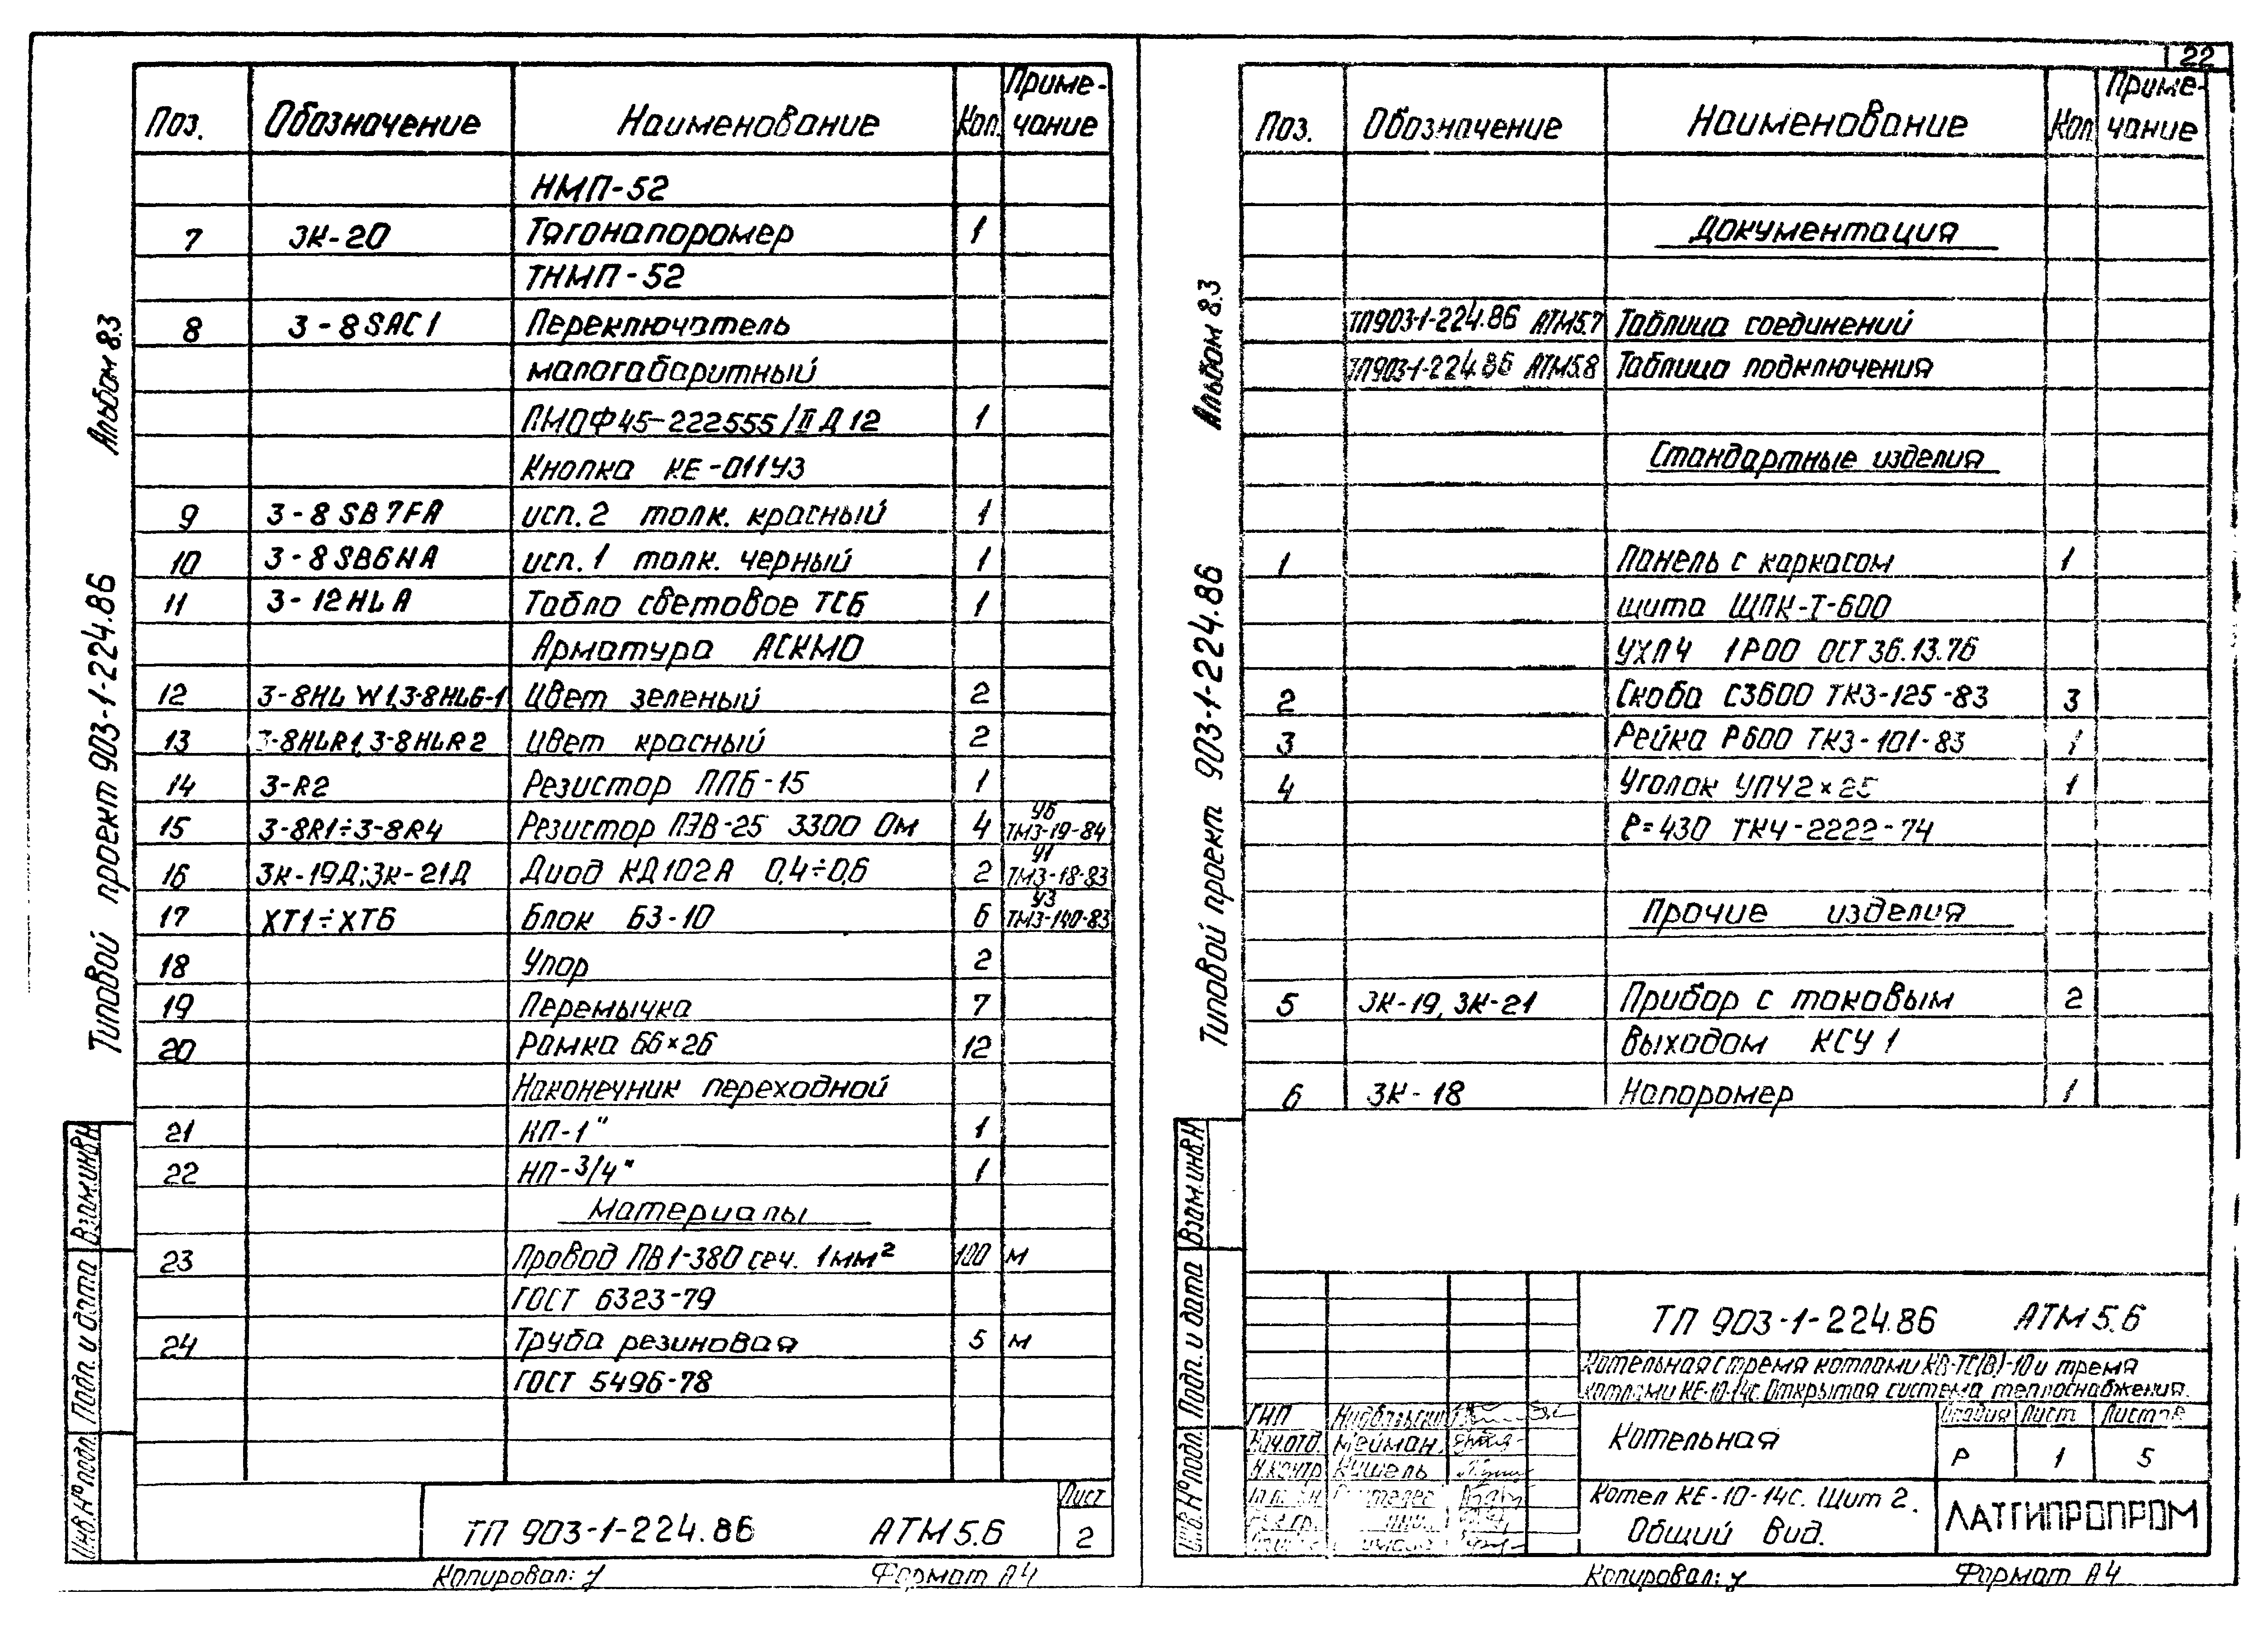 22
Альбом 8.3
Типовой проект 903-1-224.86
Взам.инв.N
Подп. и дата
Инв.№подл.
Поз. Обозначение Наименование Кол. Приме-
чание
НМП-52
7 3К-20 Тягонапоромер 1
ТНМП-52
8 3-8SAC1 Переключатель
малогабаритный
ПМОФ45-222555/II Д12 1
Кнопка КЕ-011У3
9 3-8SB7FA исп.2 толк. красный 1
10 3-8SB6HA исп.1 толк. черный 1
11 3-12HLA Табло световое ТСБ 1
Арматура АСКМО
12 3-8HLW1,3-8HLG-1 Цвет зеленый 2
13 3-8HLR1,3-8HLR2 Цвет красный 2
14 3-R2 Резистор ППБ-15 1
15 3-8R1÷3-8R4 Резистор ПЭВ-25 3300 Ом 4 У6
ТМ3-19-84
16 3К-19Д;3К-21Д Диод КД102А 0,4÷0,6 2 У1
ТМ3-18-83
17 ХТ1÷ХТ6 Блок БЗ-10 6 У3
ТМ3-140-83
18 Упор 2
19 Перемычка 7
20 Рамка 66×26 12
Наконечник переходной
21 КП-1" 1
22 НП-3/4" 1
Материалы
23 Провод ПВ1-380 сеч. 1мм² 100 м
ГОСТ 6323-79
24 Труба резиновая 5 м
ГОСТ 5496-78
ТП 903-1-224.86 АТМ5.6
Лист
2
Копировал: У Формат А4
Альбом 8.3
Типовой проект 903-1-224.86
Взам.инв.N
Подп. и дата
Инв.№подл.
Поз. Обозначение Наименование Кол. Приме-
чание
Документация
ТП903-1-224.86 АТМ5.7 Таблица соединений
ТП903-1-224.86 АТМ5.8 Таблица подключения
Стандартные изделия
1 Панель с каркасом 1
щита ЩПК-I-600
УХЛ4 IP00 ОСТ36.13.76
2 Скоба С3600 ТК3-125-83 3
3 Рейка Р600 ТК3-101-83 1
4 Уголок УП42×25 1
ℓ=430 ТК4-2222-74
Прочие изделия
5 3К-19, 3К-21 Прибор с токовым 2
выходом КСУ1
6 3К-18 Напоромер 1
ТП 903-1-224.86 АТМ5.6
Котельная с тремя котлами КВ-ТС(В)-10 и тремя
котлами КЕ-10-14с. Открытая система теплоснабжения.
ГИП
Нач.отд. Мейман.
Н.контр Кушель
Котельная
Стадия Лист Листов
Р 1 5
Котел КЕ-10-14с. Щит 2.
Общий вид.
ЛАТГИПРОПРОМ
Копировал: У Формат А4